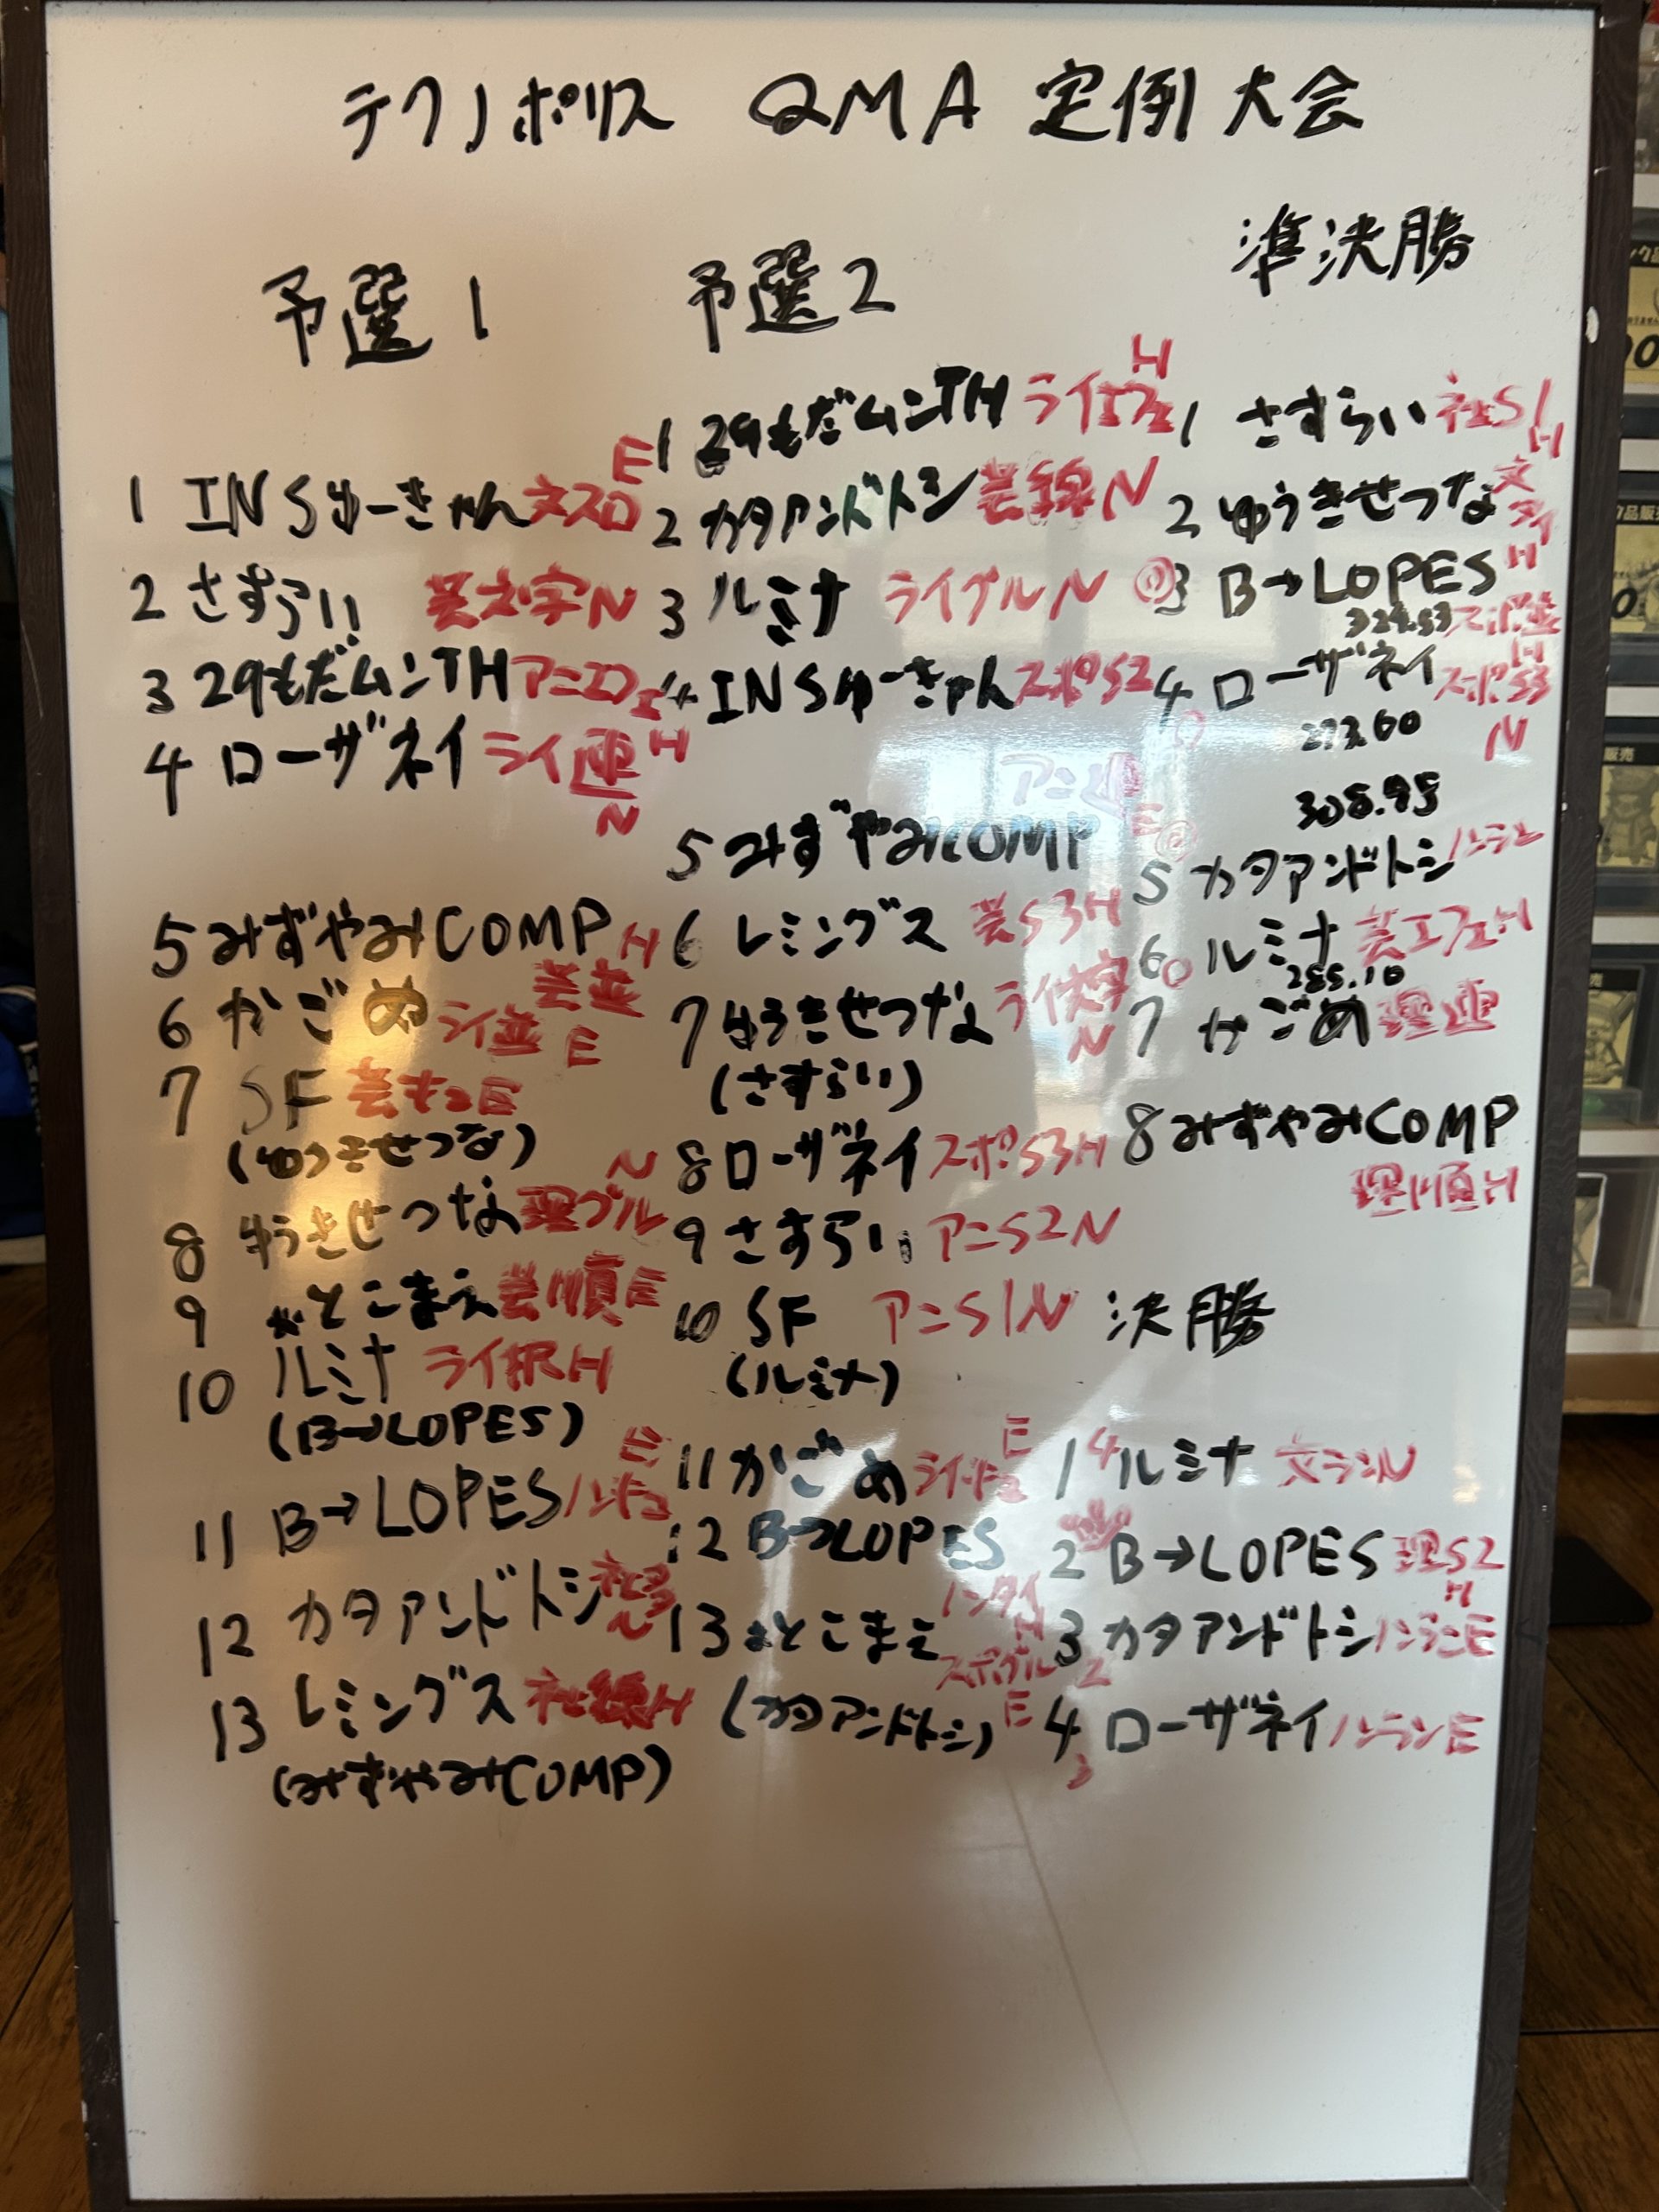 テクノポリス QMA 定例大会
予選 1
1 INSゆーきゃん 文スロ E
2 さすらい 芸文字N
3 29もだムンTH アニエフェ H
4 ローザネイ ライ連 N
5 みずやみCOMP 芸並 H
6 かごめ ライ並 E
7 SF 芸キュE
(ゆうきせつな)
8 ゆうきせつな 理ブル N
9 おとこまえ 芸順E
10 ルミナ ライ択H
(B→LOPES)
11 B→LOPES ノンキュ E
12 カタアンドトシ 社多 N
13 レミングス 社線H
(みずやみCOMP)
予選2
1 29もだムンTH ライエフェ H
2 カタアンドトシ 芸線N
3 ルミナ ライグルN
4 INSゆーきゃん スポS2
5 みずやみCOMP アニ連 E
6 レミングス 芸S3H
7 ゆうきせつな ライ文字 N
(さすらい)
8 ローザネイ スポS3H
9 さすらい アニS2N
10 SF アニS1N
(ルミナ)
11 かごめ ライキュ E
12 B→LOPES ノンタイ H
13 おとこまえ スポグル E
(カタアンドトシ)
準決勝
1 さすらい 社S1 H
2 ゆうきせつな 文タイ H
3 B→LOPES スポ並 H
324.53
4 ローザネイ スポS3 N
273.60
308.95
5 カタアンドトシ ノンラン
6 ルミナ 芸エフェH
285.10
7 かごめ 理連
8 みずやみCOMP
理順H
決勝
1 4 ルミナ 文ランN
2 B→LOPES 理S2 H
3 カタアンドトシ ノンランE
2
4 ローザネイ ノンランE
3